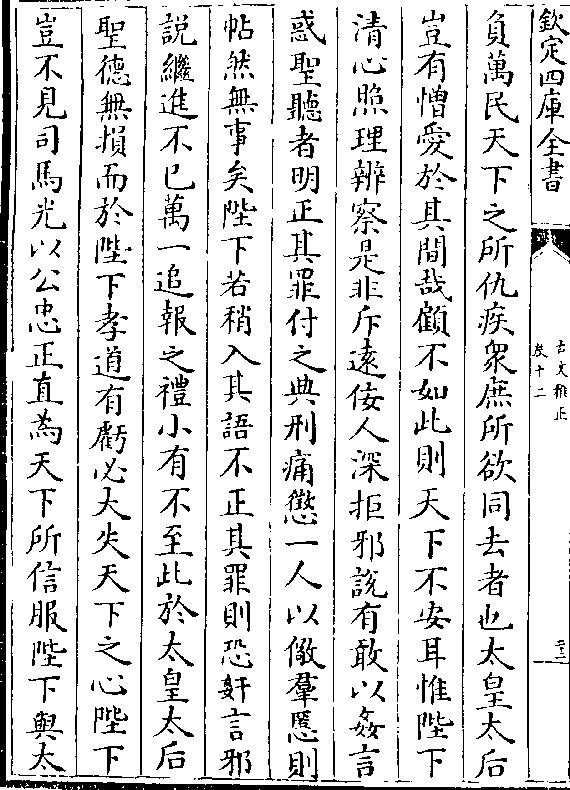 欽定四庫全書
古文雅正
卷十二
二三
負萬民天下之所仇疾衆庶所欲同去者也太皇太后
豈有憎愛於其間哉顧不如此則天下不安耳惟陛下
清心照理辨察是非斥遠佞人深拒邪說有敢以姦言
惑聖聽者明正其罪付之典刑痛懲一人以儆羣慝則
帖然無事矣陛下若稍入其語不正其罪則恐奸言邪
說繼進不已萬一追報之禮小有不至此於太皇太后
聖德無損而於陛下孝道有虧必大失天下之心陛下
豈不見司馬光以公忠正直為天下所信服陛下與太